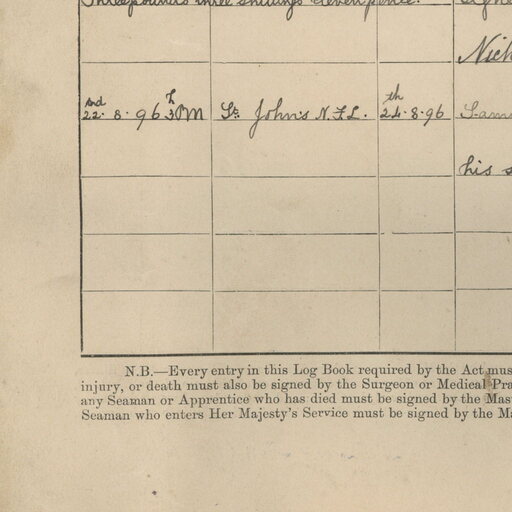 Three pounds three shillings eleven pence.
Nich
22nd. 8. 96 3h PM St. John's N.F.L. 24th. 8. 96 Sam
his s
N.B.—Every entry in this Log Book required by the Act mus
injury, or death must also be signed by the Surgeon or Medical Pra
any Seaman or Apprentice who has died must be signed by the Mas
Seaman who enters Her Majesty's Service must be signed by the Ma